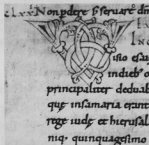 Non pdere si seruare
In
Uisio esa
indieb'
principaliter deduab
que insamaria erunt
rege iude et hierusal
niq. quinquagesimo